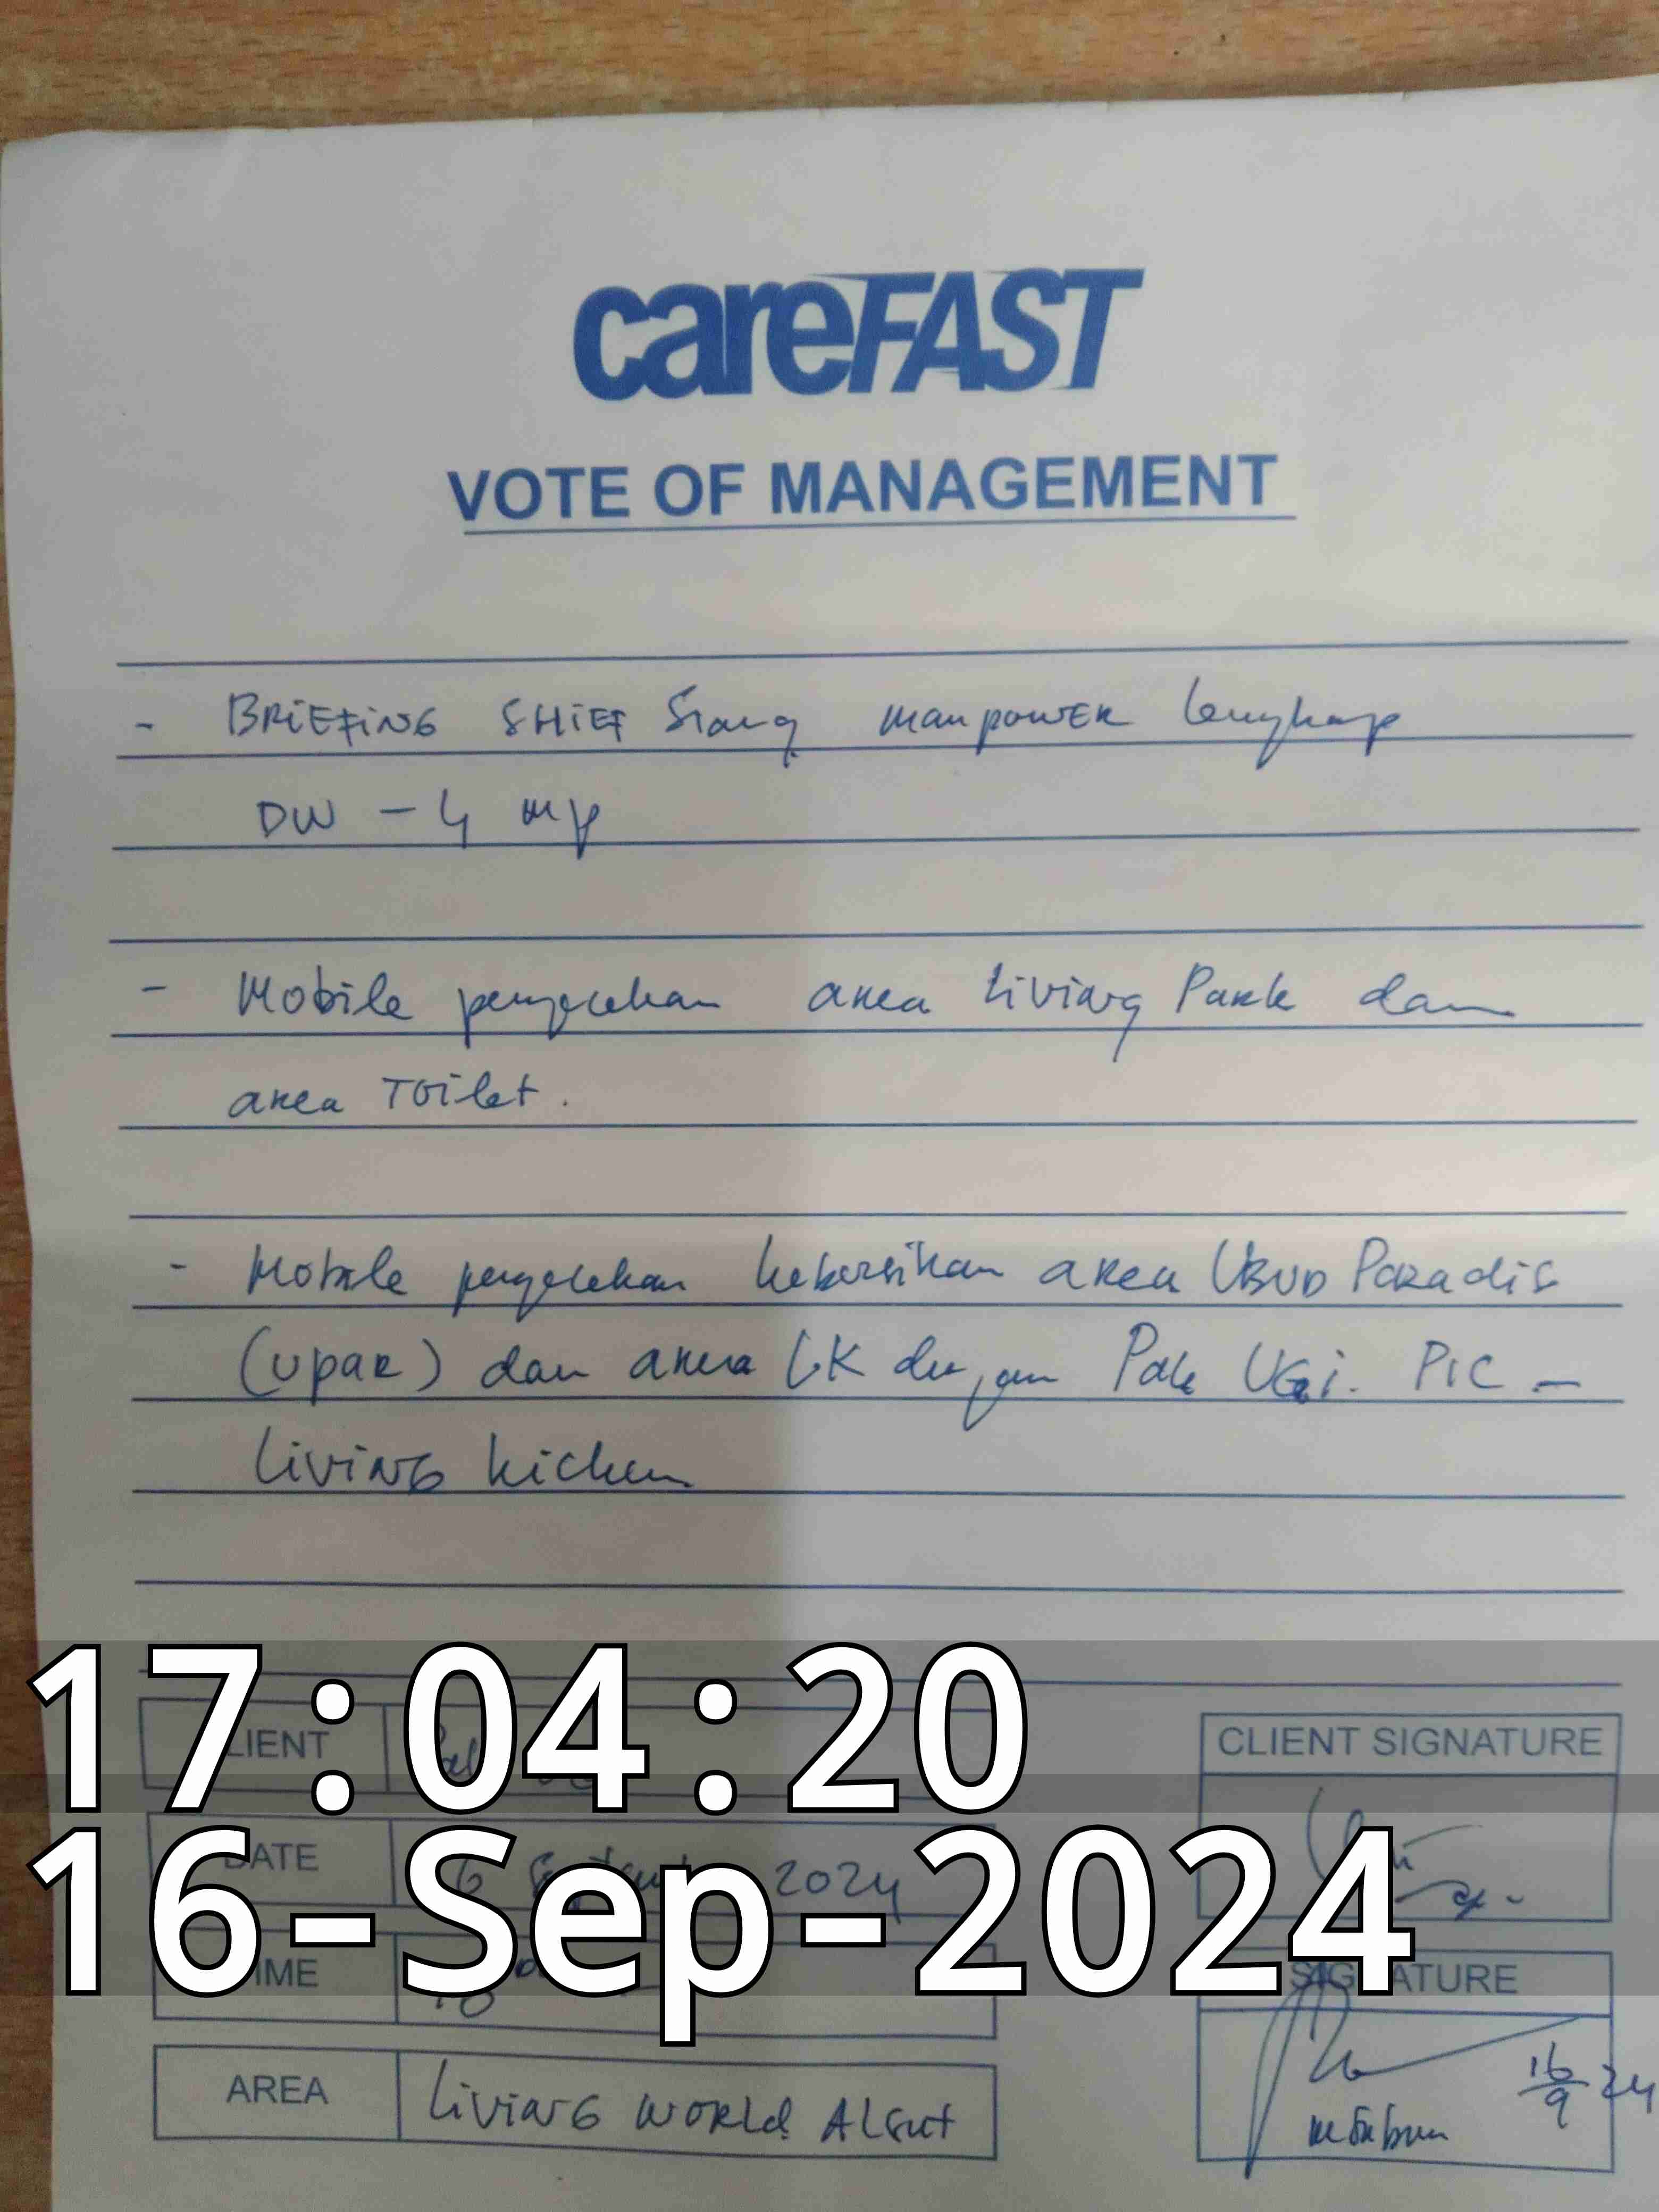 careFAST
VOTE OF MANAGEMENT
- BRiEFiNG SHiEF Siang manpowER lengkap
DW - 4 mp
- Mobile pengecekan area Living Park dan
area Toilet.
- Mobile pengecekan kebersihan area UBUD Paradis
(UPAR) dan area LK dengan Pak UGi. PIC -
Living kichen
17:04:20
LIENT
CLIENT SIGNATURE
16-Sep-2024
DATE 2024
IME
SIGNATURE
AREA Living WORLD Alsut
16/9 24